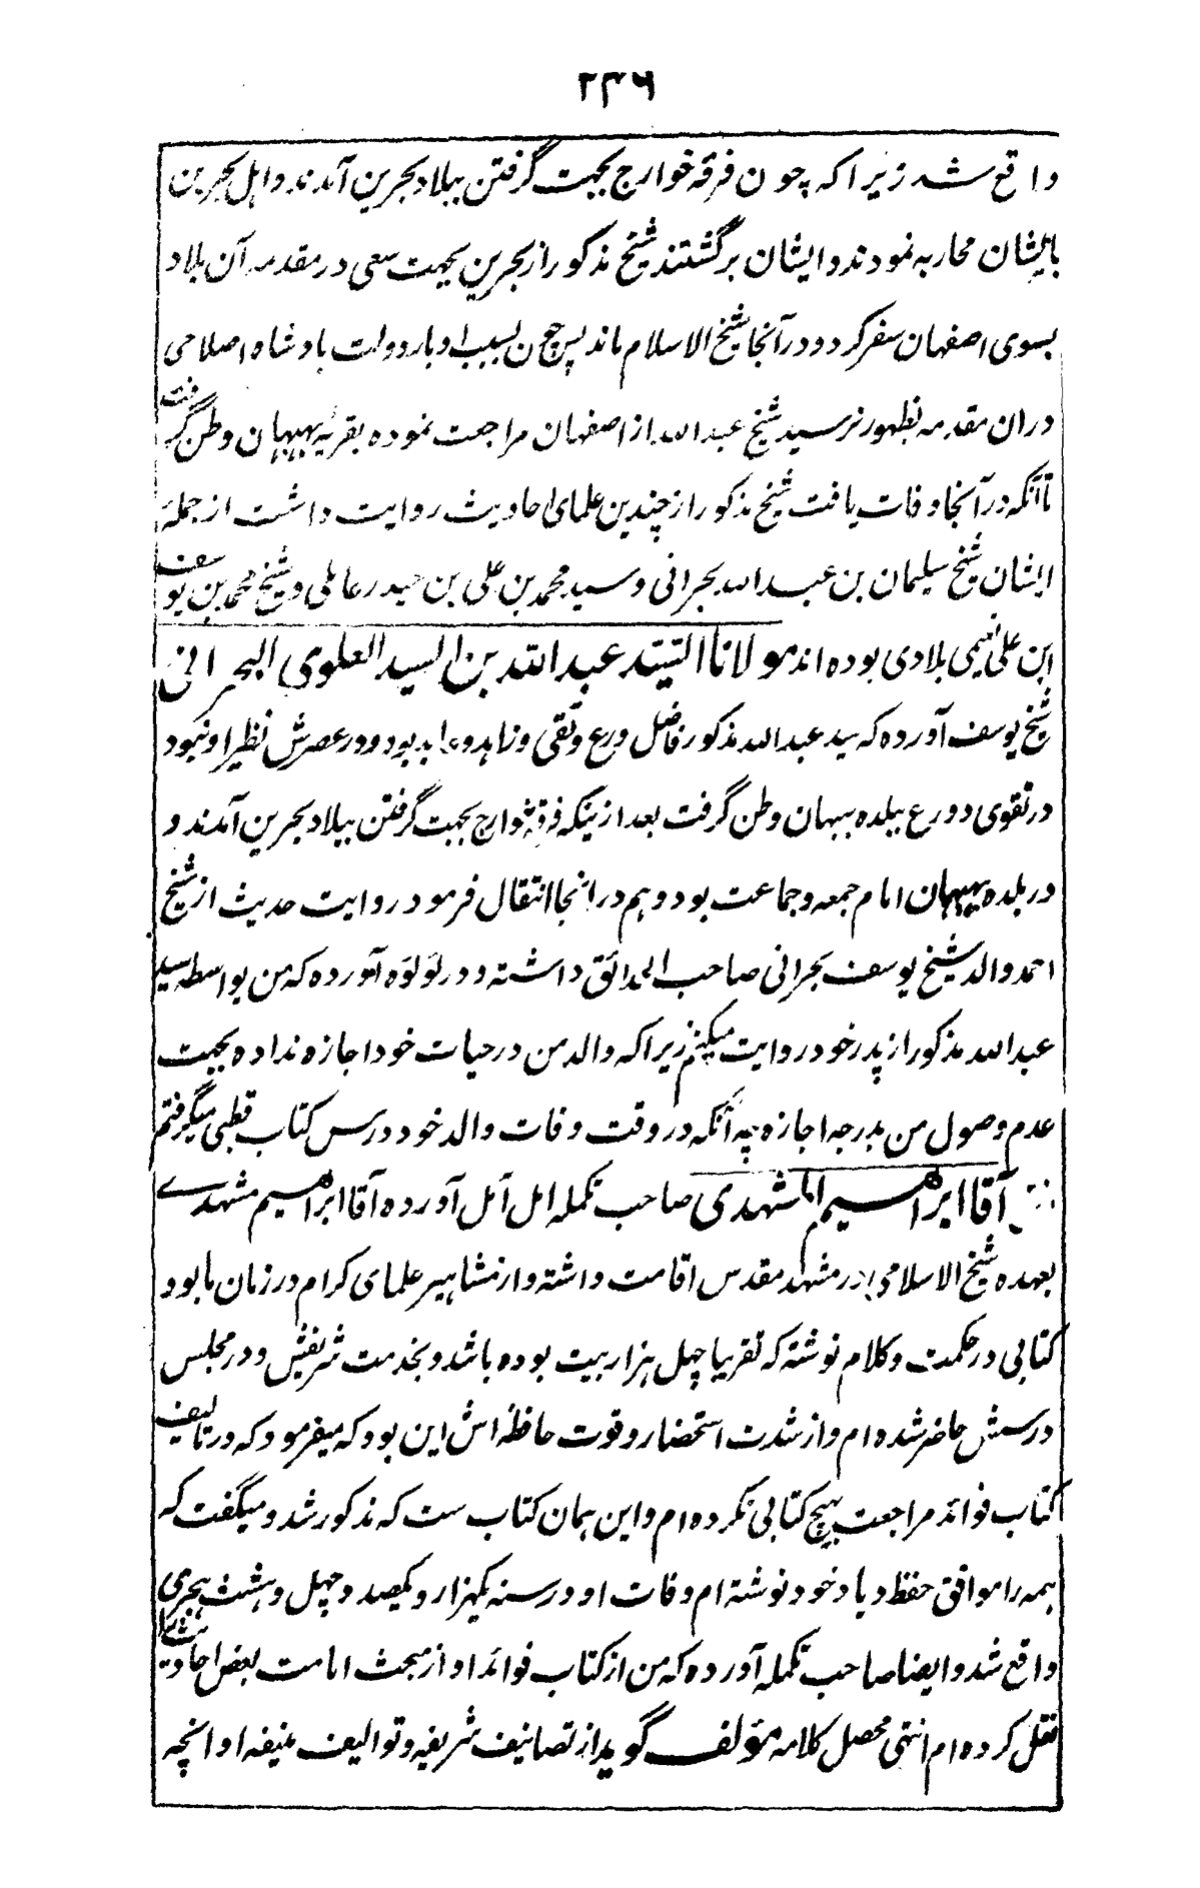 ۲۳۶
واقع شد زیرا که چون فرقه خوارج بجهت گرفتن ببلاد بحرین آمدند و اهل بحرین
بایشان محاربه نمودند و ایشان برگشتند شیخ مذکور از بحرین بجهت سعی در مقدمه آن بلاد
بسوی اصفهان سفر کرد و در آنجا شیخ الاسلام ماند پس چون بسبب ادبار دولت بادشاه اصلاحی
دران مقدمه بظهور نرسید شیخ عبد الله از اصفهان مراجعت نموده بقریه بهبهان وطن گرفت
تا آنکه در آنجا وفات یافت شیخ مذکور از چندین علمای احادیث روایت داشت از جمله
ایشان شیخ سلیمان بن عبد الله بحرانی و سید محمد بن علی بن حیدر عاملی و شیخ محمد بن یوسف
ابن علی نعیمی بلادی بوده اند مولانا السید عبد الله بن السید العلوی البحرانی
شیخ یوسف آورده که سید عبد الله مذکور فاضل ورع و تقی و زاهد و عابد بود و در عصرش نظیر او نبود
در تقوی و ورع ببلده بهبهان وطن گرفت بعد ازینکه فرقه خوارج بجهت گرفتن ببلاد بحرین آمدند و
در بلده بهبهان امام جمعه و جماعت بود و هم در انجا انتقال فرمود روایت حدیث از شیخ
احمد والد شیخ یوسف بحرانی صاحب الحدائق داشته و در لؤلؤه آورده که من بواسطه سید
عبد الله مذکور از پدر خود روایت میکنم زیرا که والد من در حیات خود اجازه نداده بجهت
عدم وصول من بدرجه اجازه چه آنکه در وقت وفات والد خود درس کتاب قطبی میگرفتم
آقا ابراهیم المشهدی صاحب تکمله امل آمل آورده آقا ابراهیم مشهدے
بعهده شیخ الاسلامی در مشهد مقدس اقامت داشته و از مشاهیر علمای کرام در زمان ما بود و
کتابی در حکمت و کلام نوشته که تقریبا چهل هزار بیت بوده باشد و بخدمت شریفش و در مجلس
درسش حاضر شده ام و از شدت استحضار و قوت حافظه اش این بود که میفرمود که در تالیف
کتاب فوائد مراجعت بهیچ کتابی نکرده ام و این همان کتاب ست که مذکور شد و میگفت که
همه را موافق حفظ و یاد خود نوشته ام وفات او در سنه یکهزار و یکصد و چهل و هشت هجری
واقع شد و ایضا صاحب تکمله آورده که من از کتاب فوائد او از مبحث امامت بعض احادیث
نقل کرده ام انتهی محصل کلامه مؤلف گوید از تصانیف شریفه و توالیف منیفه او انچه